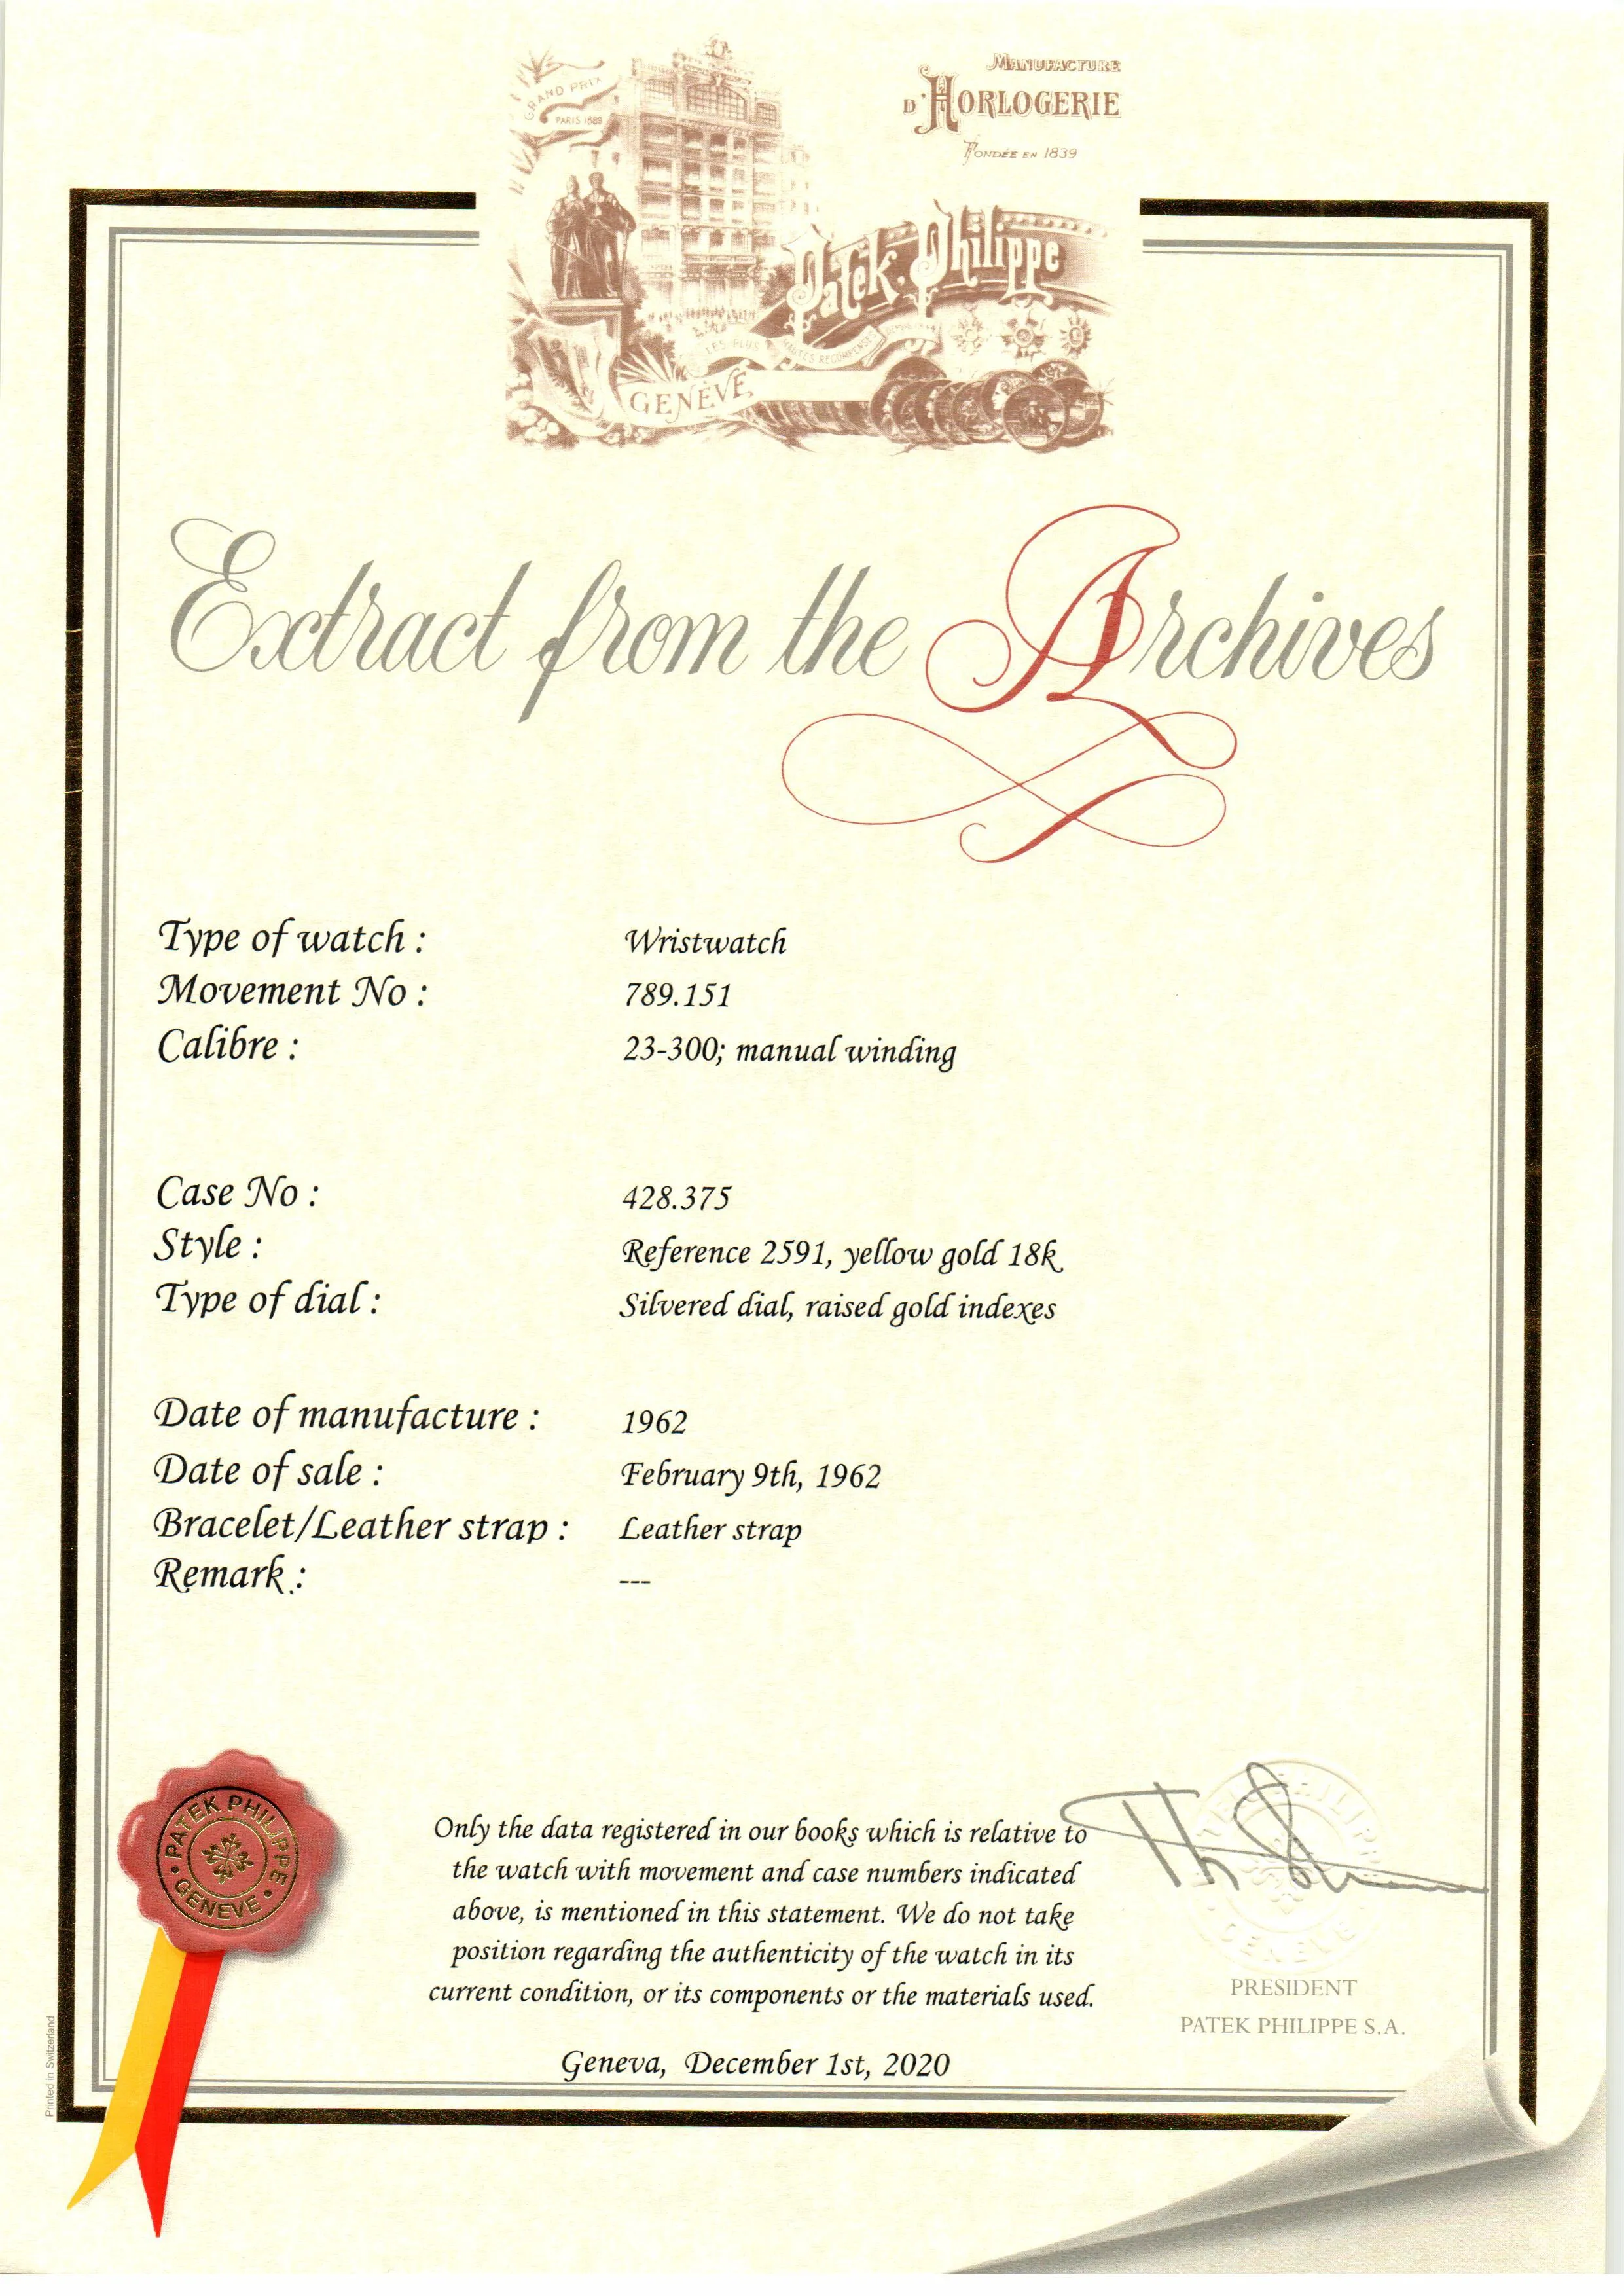 GRAND PRIX
PARIS 1889
MANUFACTURE
D'HORLOGERIE
FONDÉE EN 1839
Patek Philippe
LES PLUS HAUTES RECOMPENSES
GENÈVE
Extract from the Archives
Type of watch : Wristwatch
Movement No : 789.151
Calibre : 23-300; manual winding
Case No : 428.375
Style : Reference 2591, yellow gold 18k
Type of dial : Silvered dial, raised gold indexes
Date of manufacture : 1962
Date of sale : February 9th, 1962
Bracelet/Leather strap : Leather strap
Remark : ---
PATEK PHILIPPE
GENEVE
Only the data registered in our books which is relative to
the watch with movement and case numbers indicated
above, is mentioned in this statement. We do not take
position regarding the authenticity of the watch in its
current condition, or its components or the materials used.
Geneva, December 1st, 2020
PRESIDENT
PATEK PHILIPPE S.A.
Printed in Switzerland